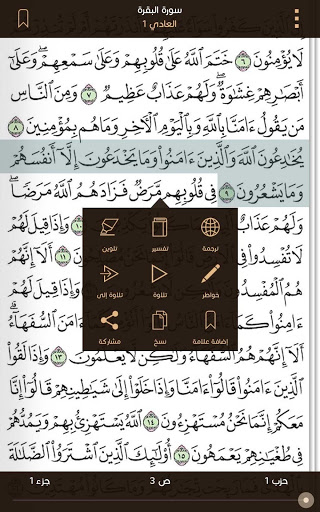 سورة البقرة
العادي 1
لَا يُؤْمِنُونَ ٦ خَتَمَ ٱللَّهُ عَلَىٰ قُلُوبِهِمْ وَعَلَىٰ سَمْعِهِمْ ۖ وَعَلَىٰٓ
أَبْصَٰرِهِمْ غِشَٰوَةٌ ۖ وَلَهُمْ عَذَابٌ عَظِيمٌ ٧ وَمِنَ ٱلنَّاسِ
مَن يَقُولُ ءَامَنَّا بِٱللَّهِ وَبِٱلْيَوْمِ ٱلْءَاخِرِ وَمَا هُم بِمُؤْمِنِينَ ٨
يُخَٰدِعُونَ ٱللَّهَ وَٱلَّذِينَ ءَامَنُوا۟ وَمَا يَخْدَعُونَ إِلَّآ أَنفُسَهُمْ
وَمَا يَشْعُرُونَ ٩ فِى قُلُوبِهِم مَّرَضٌ فَزَادَهُمُ ٱللَّهُ مَرَضًا ۖ
وَلَهُمْ عَذَابٌ ١٠ وَإِذَا قِيلَ لَهُمْ
ترجمة تفسير تلوين
لَا تُفْسِدُوا۟ فِى ١١ أَلَآ إِنَّهُمْ
هُمُ ٱلْمُفْسِدُ وَإِذَا قِيلَ لَهُمْ
خواطر تلاوة تلاوة إلى
ءَامِنُوا۟ كَمَآ ٱلسُّفَهَآءُ ۗ
إضافة علامة نسخ مشاركة
أَلَآ إِنَّهُمْ هُمُ ٱلسُّفَهَآءُ وَلَٰكِن لَّا يَعْلَمُونَ ١٣ وَإِذَا لَقُوا۟
ٱلَّذِينَ ءَامَنُوا۟ قَالُوٓا۟ ءَامَنَّا وَإِذَا خَلَوْا۟ إِلَىٰ شَيَٰطِينِهِمْ قَالُوٓا۟ إِنَّا
مَعَكُمْ إِنَّمَا نَحْنُ مُسْتَهْزِءُونَ ١٤ ٱللَّهُ يَسْتَهْزِئُ بِهِمْ وَيَمُدُّهُمْ
فِى طُغْيَٰنِهِمْ يَعْمَهُونَ ١٥ أُو۟لَٰٓئِكَ ٱلَّذِينَ ٱشْتَرَوُا۟ ٱلضَّلَٰلَةَ
حزب 1 ص 3 جزء 1